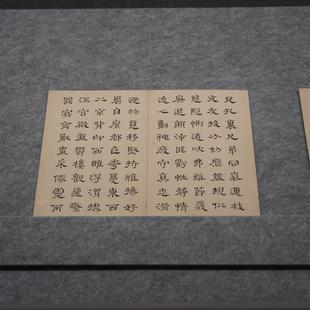 兒孔懷兄弟同氣連枝
交友投分切磨箴規仁
慈隱惻造次弗離節義
廉退顛沛匪虧性靜情
逸心動神疲守真志滿
逐物意移堅持雅操好
爵自縻都邑華夏東西
二京背邙面雒浮渭據
涇宮殿盤鬱樓觀飛驚
圖寫禽獸畫采僊靈丙